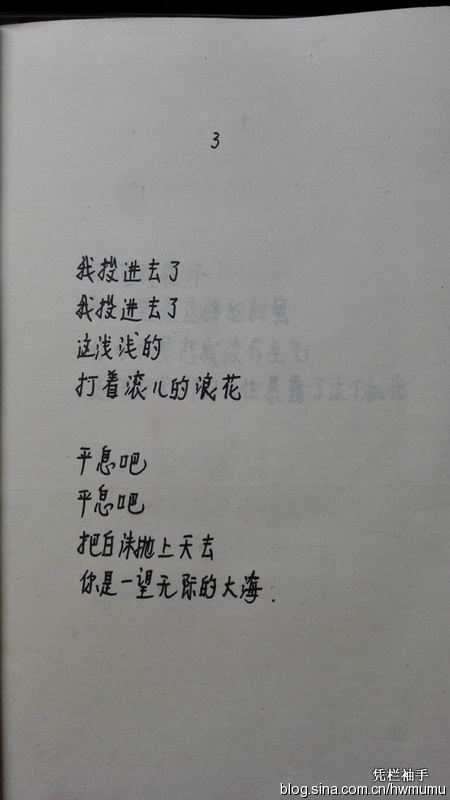 3
我投进去了
我投进去了
这浅浅的
打着滚儿的浪花
平息吧
平息吧
把白沫抛上天去
你是一望无际的大海.
凭栏袖手
blog.sina.com.cn/hwmumu